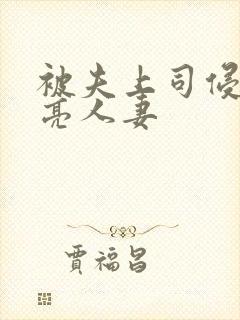 被夫上司侵
亮人妻
贾福昌